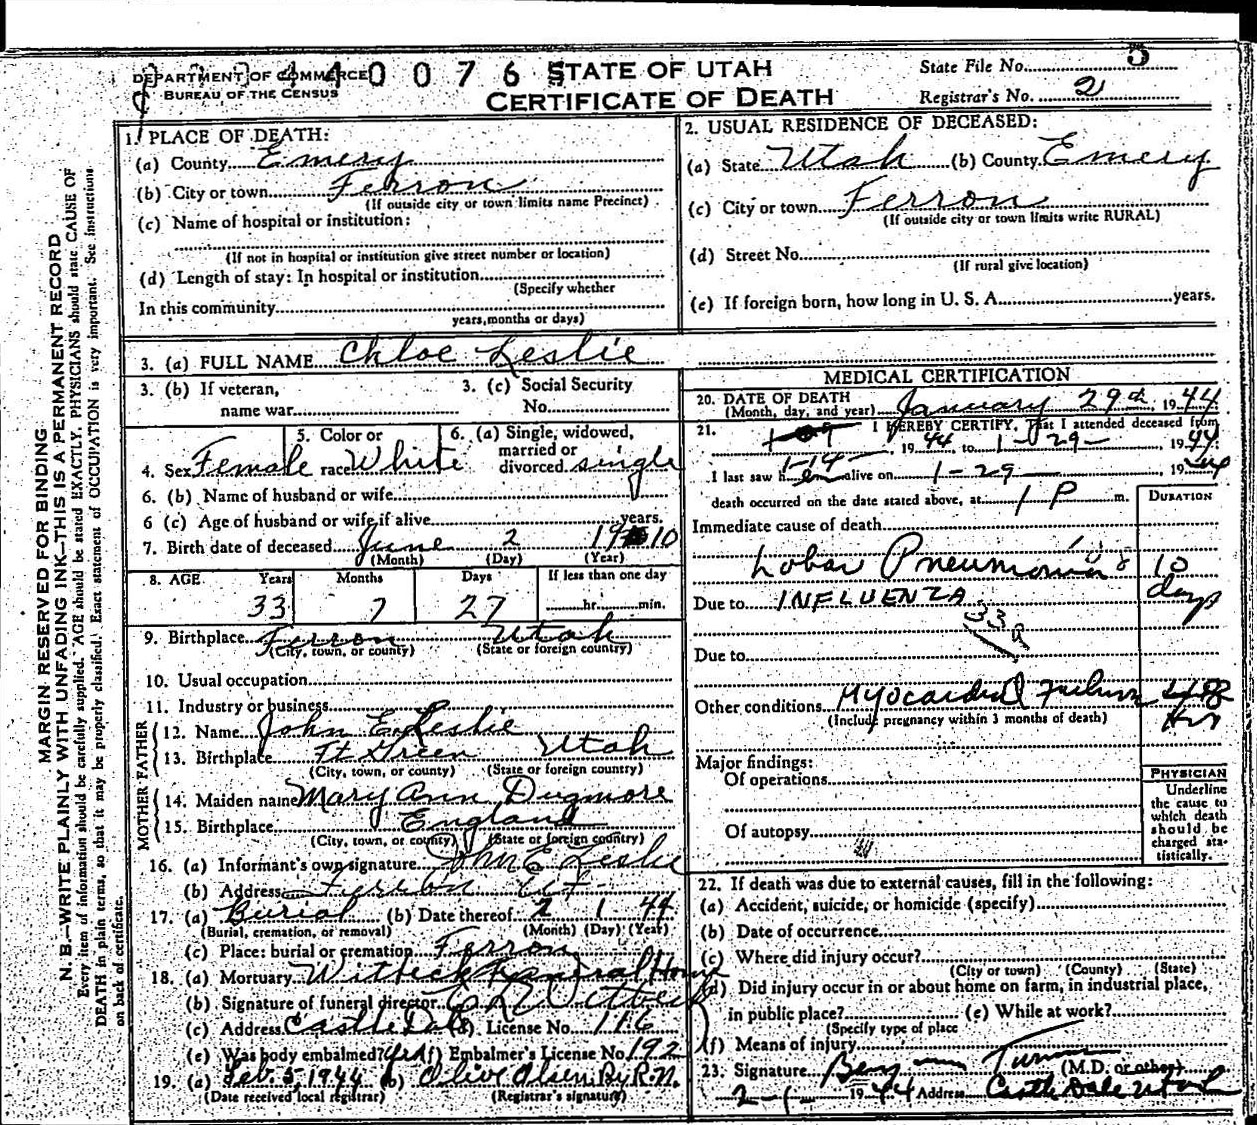 DEPARTMENT OF COMMERCE
BUREAU OF THE CENSUS
440076
STATE OF UTAH
CERTIFICATE OF DEATH
State File No. 5
Registrar's No. 2
MARGIN RESERVED FOR BINDING
N. B.—WRITE PLAINLY WITH UNFADING INK—THIS IS A PERMANENT RECORD
Every item of information should be carefully supplied. AGE should be stated EXACTLY. PHYSICIANS should state CAUSE OF
DEATH in plain terms, so that it may be properly classified. Exact statement of OCCUPATION is very important. See instructions
on back of certificate.
1. PLACE OF DEATH:
(a) County Emery
(b) City or town Ferron
(If outside city or town limits name Precinct)
(c) Name of hospital or institution:
(If not in hospital or institution give street number or location)
(d) Length of stay: In hospital or institution
(Specify whether
In this community
years, months or days)
2. USUAL RESIDENCE OF DECEASED:
(a) State Utah (b) County Emery
(c) City or town Ferron
(If outside city or town limits write RURAL)
(d) Street No.
(If rural give location)
(e) If foreign born, how long in U. S. A. years.
3. (a) FULL NAME Chloe Leslie
3. (b) If veteran,
name war
3. (c) Social Security
No.
4. Sex Female
5. Color or
race White
6. (a) Single, widowed,
married or
divorced single
6. (b) Name of husband or wife
6 (c) Age of husband or wife, if alive years.
7. Birth date of deceased June 2 1910
(Month) (Day) (Year)
8. AGE Years Months Days If less than one day
33 7 27 hr. min.
9. Birthplace Ferron Utah
(City, town, or county) (State or foreign country)
10. Usual occupation
11. Industry or business
FATHER
12. Name John E Leslie
13. Birthplace Ft Green Utah
(City, town, or county) (State or foreign country)
MOTHER
14. Maiden name Mary Ann Dugmore
15. Birthplace England
(City, town, or county) (State or foreign country)
16. (a) Informant's own signature John E Leslie
(b) Address Ferron Ut
17. (a) Burial (b) Date thereof 2 1 44
(Burial, cremation, or removal) (Month) (Day) (Year)
(c) Place: burial or cremation Ferron
18. (a) Mortuary Witbeck Funeral Home
(b) Signature of funeral director Witbeck
(c) Address Castle Dale License No. 116
(e) Was body embalmed? yes (f) Embalmer's License No. 192
19. (a) Feb. 5, 1944 (b) Olive Olsen By R.N.
(Date received local registrar) (Registrar's signature)
MEDICAL CERTIFICATION
20. DATE OF DEATH
(Month, day, and year) January 29th, 1944
21. I HEREBY CERTIFY, That I attended deceased from
1-14-, 1944 to 1-29-, 1944
I last saw h er alive on 1-29, 1944
death occurred on the date stated above, at 1 P m.
DURATION
Immediate cause of death
Lobar Pneumonia 10
days
Due to INFLUENZA
33a
Due to
Other conditions Myocardial Failure 48
Hrs
(Include pregnancy within 3 months of death)
Major findings:
Of operations
Of autopsy
PHYSICIAN
Underline
the cause to
which death
should be
charged sta-
tistically.
22. If death was due to external causes, fill in the following:
(a) Accident, suicide, or homicide (specify)
(b) Date of occurrence
(c) Where did injury occur?
(City or town) (County) (State)
(d) Did injury occur in or about home on farm, in industrial place,
in public place? (e) While at work?
(Specify type of place
(f) Means of injury
23. Signature Turman (M.D. or other)
2-1- 1944 Address Castle Dale Utah